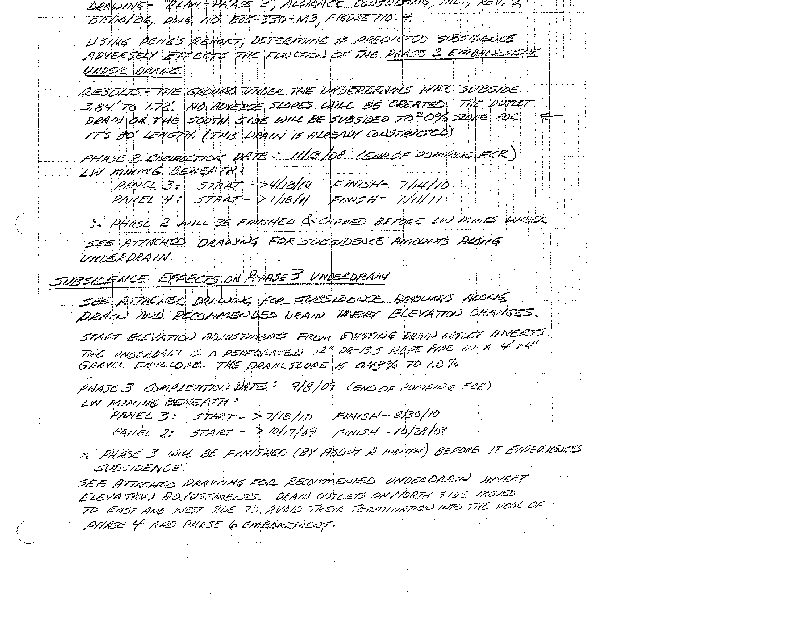 DRAWING- "PLAN-PHASE 2", ALLIANCE CONSULTING, INC., REV. 2,
USING REPORT, DETERMINE IF PREDICTED SUBSIDENCE
ADVERSELY EFFECTS THE FUNCTION OF THE PHASE 2 EMBANKMENT
UNDER DRAINS
RESULTS - THE GROUND UNDER THE UNDERDRAINS WILL SUBSIDE
3.84' TO 1.72'. NO ADVERSE SLOPES WILL BE CREATED. THE OUTLET
DRAIN ON THE SOUTH SIDE WILL BE SUBSIDED TO 0% SLOPE FOR
IT'S 80' LENGTH (THIS DRAIN IS ALREADY CONSTRUCTED)
PHASE 2 DATE: (END OF PUMPING FCR)
LW MINING BENEATH:
PANEL 3: START - FINISH - 7/14/10
PANEL 4: START - FINISH -
∴ PHASE 2 WILL BE FINISHED & BEFORE LW MINES UNDER.
SEE ATTACHED DRAWING FOR SUBSIDENCE AMOUNTS ALONG
UNDERDRAIN.
SUBSIDENCE EFFECTS ON PHASE 3 UNDERDRAIN
SEE ATTACHED DRAWING FOR SUBSIDENCE AMOUNTS ALONG
DRAIN AND RECOMMENDED DRAIN INVERT ELEVATION CHANGES.
START ELEVATION ADJUSTMENTS FROM EXISTING DRAIN OUTLET INVERTS.
THE UNDERDRAIN IS A PERFORATED 12" PIPE IN A 4'x4'
GRAVEL ENVELOPE. THE DRAIN SLOPE IS TO 1.0%
PHASE 3 COMPLETION DATE: 9/8/09 (END OF PUMPING FCR)
LW MINING BENEATH:
PANEL 3: START -> 7/18/10 FINISH - 8/30/10
PANEL 2: START -> 10/17/09 FINISH - 10/28/09
∴ PHASE 3 WILL BE FINISHED (BY ABOUT A MONTH) BEFORE IT EXPERIENCES
SUBSIDENCE.
SEE ATTACHED DRAWING FOR RECOMMENDED UNDERDRAIN INVERT
ELEVATION ADJUSTMENTS. DRAIN OUTLETS ON NORTH SIDE MOVED
TO EAST AND WEST SIDE TO AVOID THEIR TERMINATION INTO THE POOL OF
PHASE 4 AND PHASE 6 EMBANKMENT.